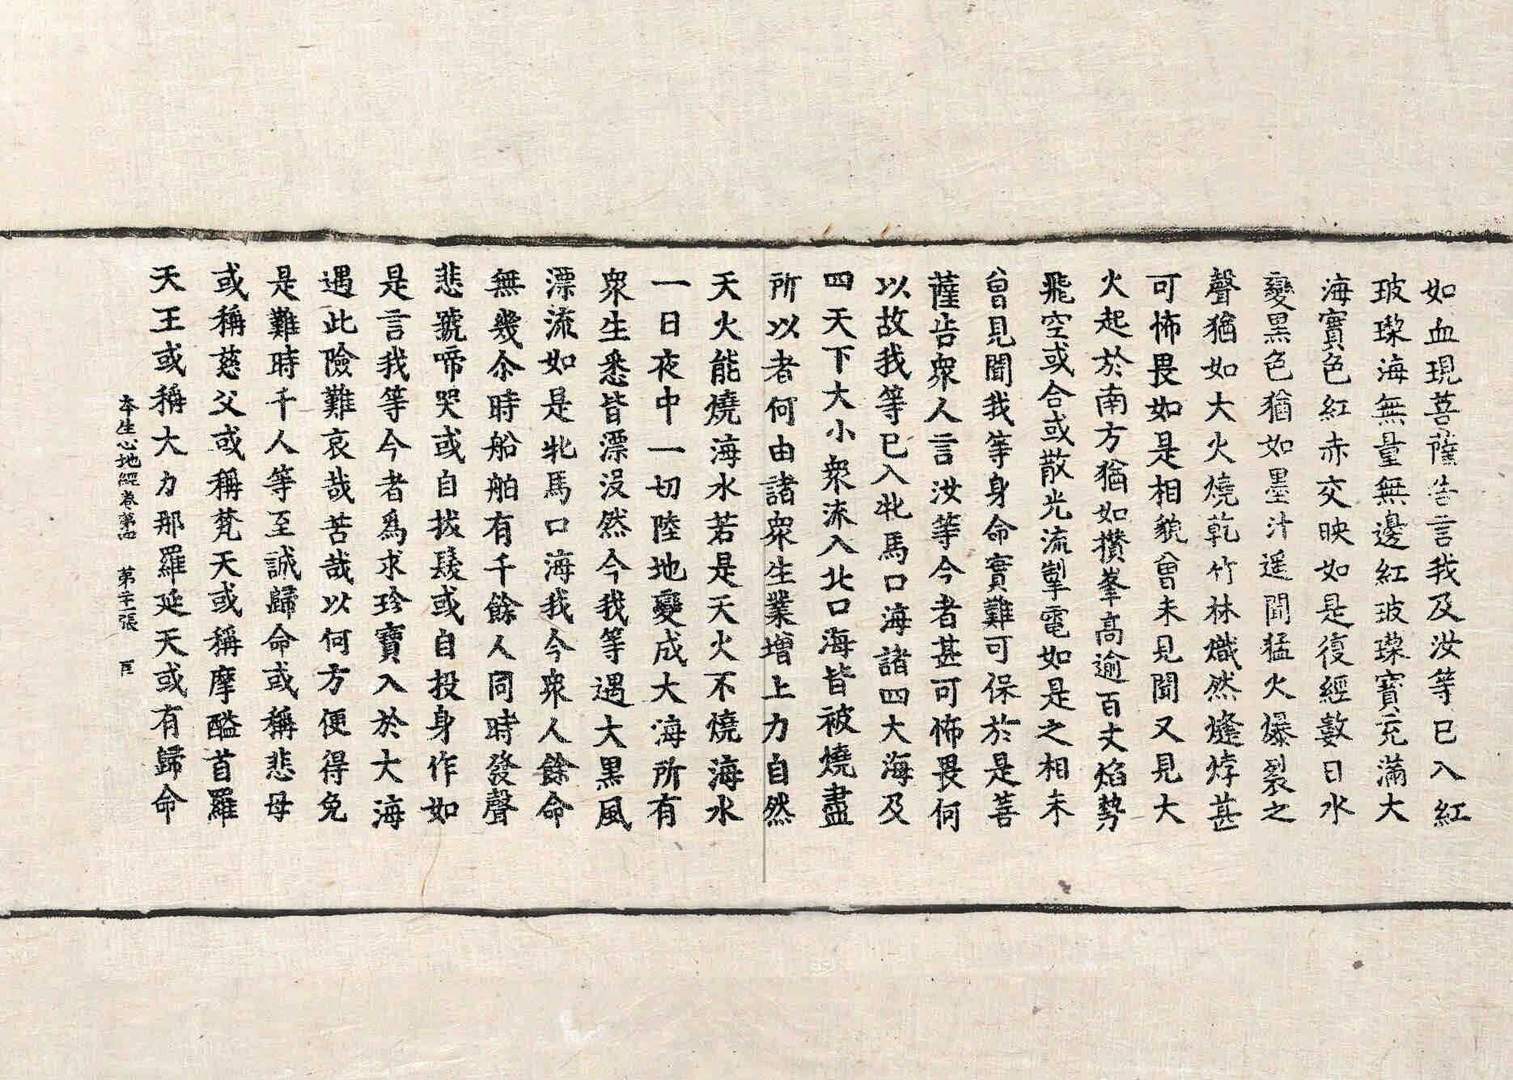 如血現菩薩告言我及汝等已入紅
玻瓈海無量無邊紅玻瓈寶充滿大
海寶色紅赤交映如是復經數日水
變黑色猶如墨汁遥聞猛火爆裂之
聲猶如大火燒乾竹林熾然熢㶿甚
可怖畏如是相貌曾未見聞又見大
火起於南方猶如攢峯高逾百丈焰勢
飛空或合或散光流掣電如是之相未
曾見聞我等身命實難可保於是菩
薩告衆人言汝等今者甚可怖畏何
以故我等已入牝馬口海諸四大海及
四天下大小衆流入北口海皆被燒盡
所以者何由諸衆生業增上力自然
天火能燒海水若是天火不燒海水
一日夜中一切陸地變成大海所有
衆生悉皆漂没然今我等遇大黑風
漂流如是牝馬口海我今衆人餘命
無幾尒時船舶有千餘人同時發聲
悲號啼哭或自拔髮或自投身作如
是言我等今者爲求珍寶入於大海
遇此險難哀哉苦哉以何方便得免
是難時千人等至誠歸命或稱悲母
或稱慈父或稱梵天或稱摩醯首羅
天王或稱大力那羅延天或有歸命
本生心地經卷第四 第二十張 臣